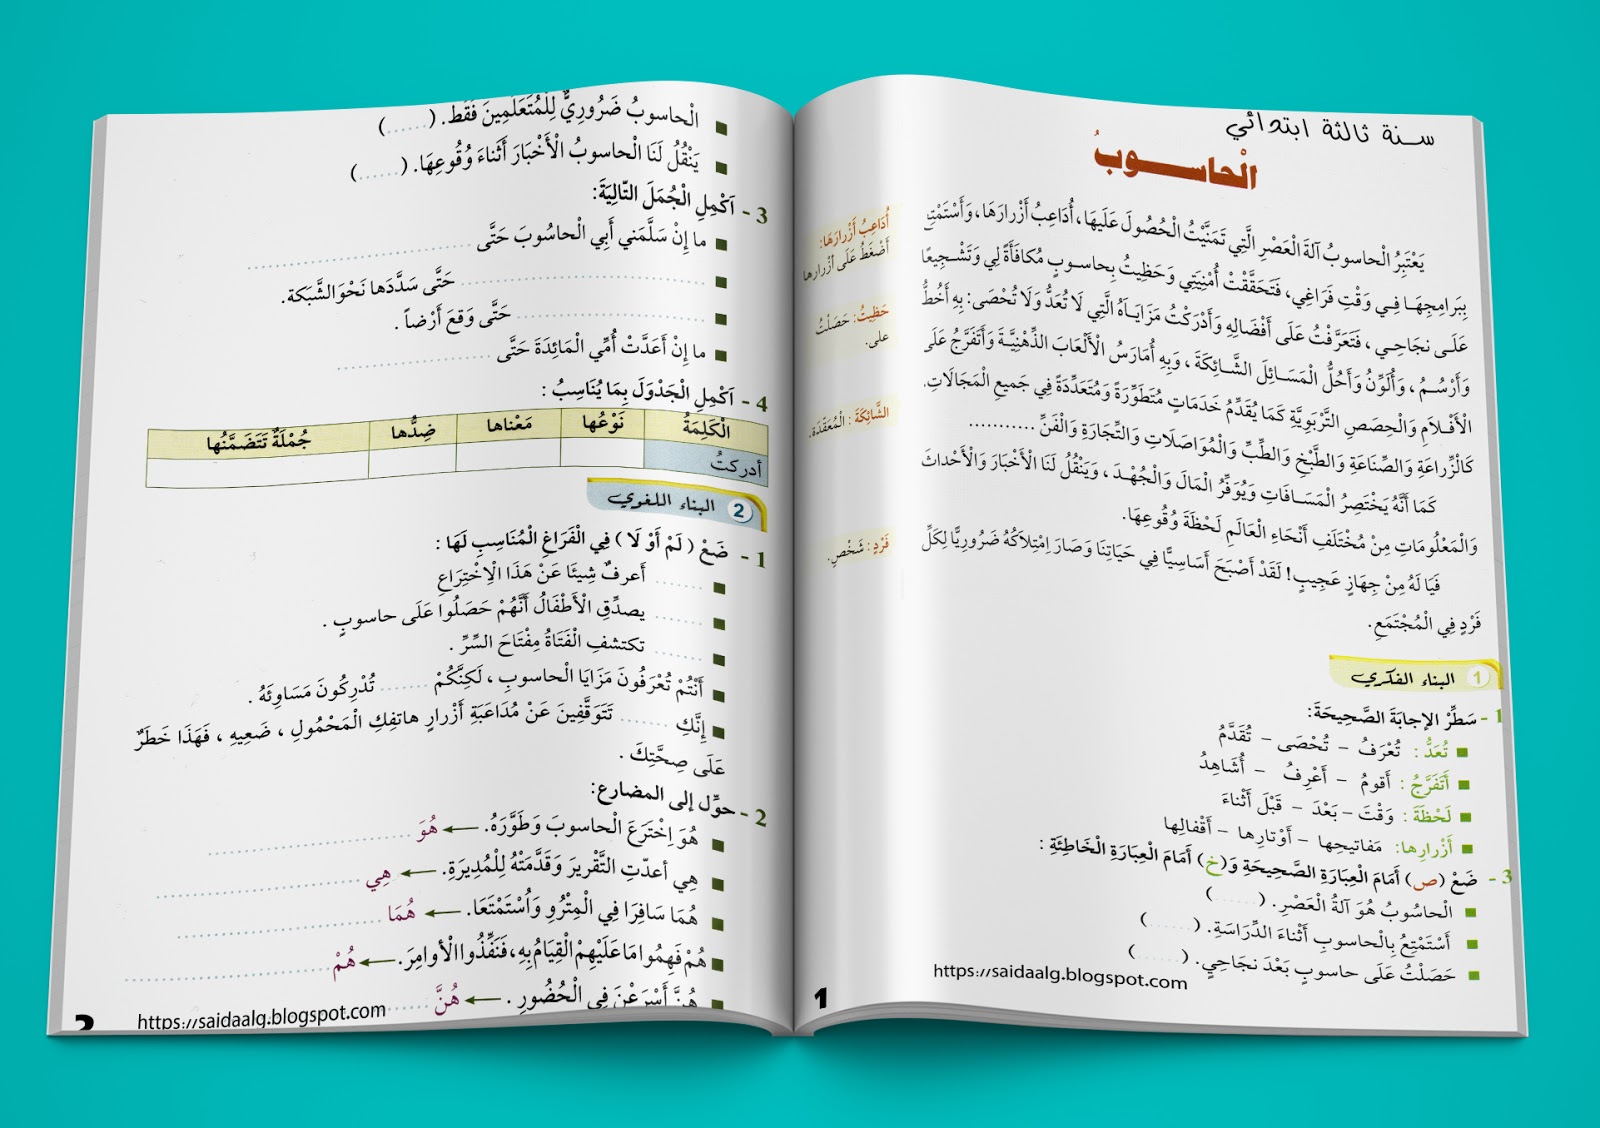 سنة ثالثة ابتدائي
الْحاســـوبُ
يَعْتَبِرُ الْحاسوبُ آلَةَ الْعَصْرِ الَّتِي تَمَنَّيْتُ الْحُصُولَ عَلَيهَا، أُدَاعِبُ أَزْرارَهَا، وَأَسْتَمْتِعُ
بِبَرامِجِهَـا فِـي وَقْتِ فَرَاغِي، فَتَحَقَّقْتْ أُمْنِيَتِي وَحَظِيتُ بِحاسـوبٍ مُكافَأَةً لِي وَتَشْـجِيعًا
عَلَـى نجَاحِـي، فَتَعَرَّفْتُ عَلَى أَفْضَالِهِ وَأَدْرَكْتُ مَزَايَـاهُ الَّتِي لَا تُعَدُّ وَلَا تُحْصَى: بِهِ أَخُطُّ
وَأَرْسُـمُ، وَأُلَوِّنُ وَأَحُلُّ الْمَسَـائِلَ الشَّـائِكَةَ، وَبِهِ أُمَارَسُ الْأَلْعَابَ الذِّهْنِيَّـةَ وَأَتَفَرَّجُ عَلَى
الْأَفْـلَامِ وَالْحِصَصِ التَّرْبَوِيَّةِ كَمَا يُقَدِّمُ خَدَمَاتٍ مُتَطَوِّرَةً وَمُتَعَدِّدَةً فِي جَمِيعِ الْمَجَالَاتِ.
كَالْزِّراعَةِ وَالصِّنَاعَةِ وَالطَّبْخِ وَالطِّبِّ وَالْمُوَاصَلَاتِ وَالتِّجَارَةِ وَالْفَنِّ ...........
كَمَا أَنَّهُ يَخْتَصِرُ الْمَسَـافَاتِ وَيُوَفِّرُ الْمَالَ وَالْجُهْـدَ، وَيَنْقُلُ لَنَا الْأَخْبَارَ وَالْأَحْداثَ
وَالْمَعْلُومَاتِ مِنْ مُخْتَلَفِ أَنْحَاءِ الْعَالَمِ لَحْظَةَ وُقُوعِهَا.
فَيَا لَهُ مِنْ جِهَازٍ عَجِيبٍ! لَقَدْ أَصْبَحَ أَسَاسِيًّا فِي حَيَاتِنَا وَصَارَ اِمْتِلاَكُهُ ضَرُورِيًّا لِكَلِّ
فَرْدٍ فِي الْمُجْتَمَعِ.
أُدَاعِبُ أَزْرارَهَا:
أَضْغَطُ عَلَى أَزْرارِها
حَظِيتُ: حَصَلْتُ
على.
الشَّائِكَةَ: الْمُعَقَّدَة.
فَرْدٍ: شَخْصٍ.
1 البناء الفكري
1 - سَطِّرْ الإجابَةَ الصَّحِيحَةَ:
تُعَدُّ: تُعْرَفُ - تُحْصَى - تُقَدَّمُ
أَتَفَرَّجُ: أَقومُ - أَعْرِفُ - أُشَاهِدُ
لَحْظَةَ: وَقْتَ - بَعْدَ - قَبْلَ أَثْناءَ
أَزْرارِها: مَفاتيحِها - أَوْتارِها - أَقْفالِها
3 - ضَعْ (ص) أَمَامَ الْعِبَارَةِ الصَّحِيحَةِ وَ(خ) أَمَامَ الْعِبَارَةِ الْخَاطِئَةِ:
الْحاسُوبُ هُوَ آلَةُ الْعَصْرِ. (......)
أَسْتَمْتِعُ بِالْحاسوبِ أَثْناءَ الدِّرَاسَةِ. (......)
حَصَلْتُ عَلَى حاسوبٍ بَعْدَ نجَاحِي. (......)
https://saidaalg.blogspot.com
1
الْحاسوبُ ضَرُورِيٌّ لِلْمُتَعَلِّمِينَ فَقَط. (......)
يَنْقُلُ لَنَا الْحاسوبُ الْأَخْبَارَ أَثْناءَ وُقُوعِهَا. (......)
3 - اَكْمِلِ الْجُمَلَ التّالِيَةَ:
ما إِنْ سَلَّمَني أَبِي الْحاسُوبَ حَتَّى ..............................
.............................. حَتَّى سَدَّدَها نَحْوَالشَّبَكة.
.............................. حَتَّى وَقعَ أَرْضاً.
ما إِنْ أَعَدَّتْ أُمِّي الْمَائِدَةَ حَتَّى ..............................
4 - اَكْمِلِ الْجَدْوَلَ بِمَا يُنَاسِبُ:
الْكَلِمَةُ نَوْعُها مَعْناها ضِدُّها جُمْلَةٌ تَتَضَمَّنُها
أدركتُ
2 البناء اللغوي
1 - ضَعْ (لَمْ أَوْ لَا) فِي الْفَرَاغِ الْمُنَاسِبِ لَهَا:
........ أَعرفُ شِيئَا عَنْ هَذَا الْاِخْتِرَاعِ
........ يصدِّقِ الْأَطْفَالُ أَنَّهُمْ حَصَلُوا عَلَى حاسوبٍ.
........ تكتشفِ الْفَتَاةُ مِفْتَاحَ السِّرِّ.
أَنْتُمْ تُعْرَفُونَ مَزَايَا الْحاسوبِ، لَكِنَّكُمْ ...... تُدْرِكُونَ مَسَاوِئَهُ.
إِنَّكِ ...... تَتَوَقَّفِينَ عَنْ مُدَاعَبَةِ أَزْرارِ هاتفِكِ الْمَحْمُولِ، ضَعِيهِ، فَهَذَا خَطَرٌ
عَلَى صِحَّتِكَ.
2 - حوِّل إلى المضارع:
هُوَ اِخْتَرَعَ الْحاسوبَ وَطَوَّرَهُ. ← هُوَ ..............................
هِي أعدّتِ التَّقْريرَ وَقَدَّمَتْهُ لِلْمُدِيرَةِ. ← هِي ..............................
هُمَا سَافِرَا فِي الْمِتْرُو وَاُسْتَمْتَعَا. ← هُمَا ..............................
هُمْ فَهِمُوا مَا عَلَيْهِمْ الْقِيَامُ بِهِ، فَنَفِّذُوا الْأوامِرَ. ← هُمْ ..............................
هُنَّ أَسْرَعْنَ فِي الْحُضُورِ. ← هُنَّ ..............................
https://saidaalg.blogspot.com
2